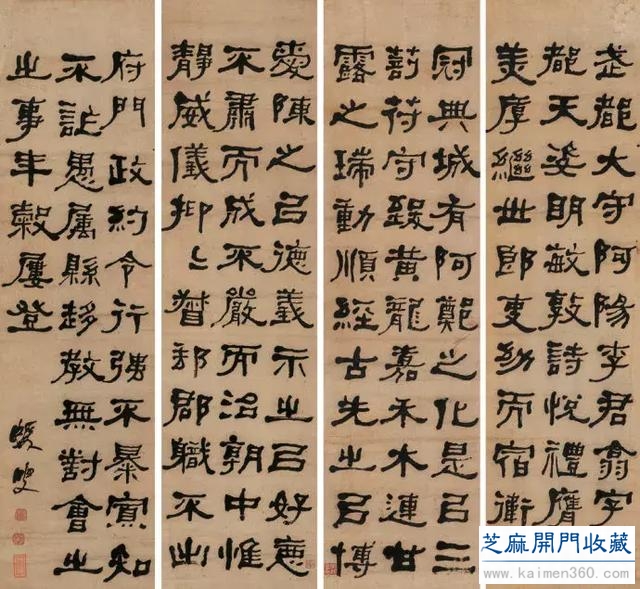 武都大守阿陽李君翕字
都天姿明敏敦詩悅禮膺
美厚繼世郎吏幼而宿衛
冠典城有阿鄭之化是㠯三
剖符守致黃龍嘉禾木連甘
露之瑞動順經古先之㠯博
愛陳之㠯德義示之㠯好惡
不肅而成不嚴而治朝中惟
靜威儀抑〻督郵郡職不出
府門政約令行強不暴寡知
不詐愚屬縣趍教無對會之
之事年穀屢登
蝯叟
芝麻開門收藏
www.kaimen360.com